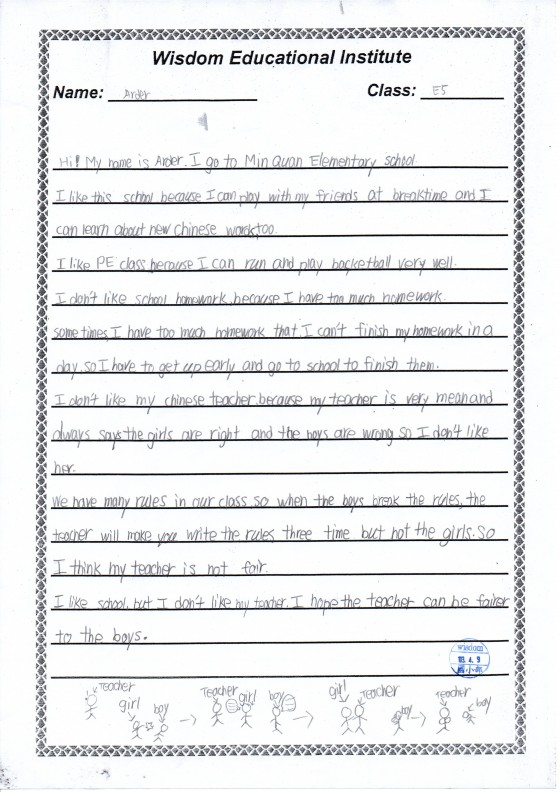 Wisdom Educational Institute
Name: Arder Class: E5
Hi! My name is Arder. I go to Min Quan Elementary school.
I like this school because I can play with my friends at breaktime and I
can learn about new chinese words,too.
I like PE class,because I can run and play backetball very well.
I don't like school homework,because I have too much homework.
sometimes, I have too much homework that I can't finish my homework in a
day,so I have to get up early and go to school to finish them.
I don't like my chinese teacher,because my teacher is very mean and
always says the girls are right and the boys are wrong so I don't like
her.
We have many rules in our class,so when the boys break the rules, the
teacher will make you write the rules three time but not the girls. So
I think my teacher is not fair.
I like school, but I don't like my teacher. I hope the teacher can be fairer
to the boys.
4. 9
Teacher girl boy
Teacher girl boy
girl Teacher boy
Teacher boy